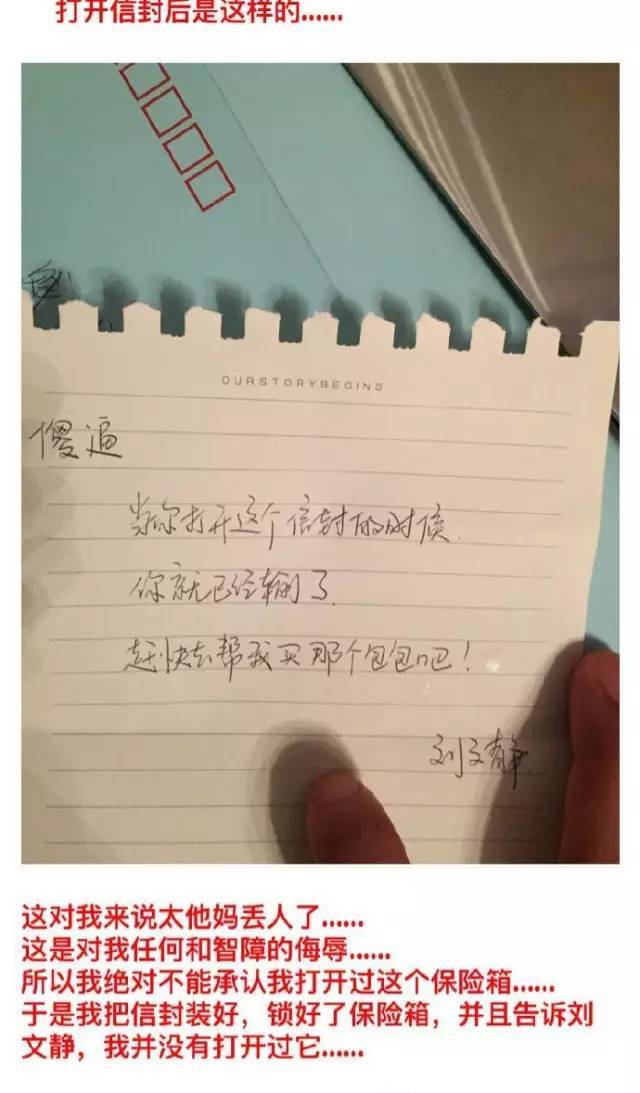 打开信封后是这样的......
OURSTORYBEGINS
傻逼
当你打开这个信封的时候
你就已经输了
赶快去帮我买那个包包吧！
刘文静
这对我来说太他妈丢人了......
这是对我任何和智障的侮辱......
所以我绝对不能承认我打开过这个保险箱......
于是我把信封装好，锁好了保险箱，并且告诉刘
文静，我并没有打开过它......